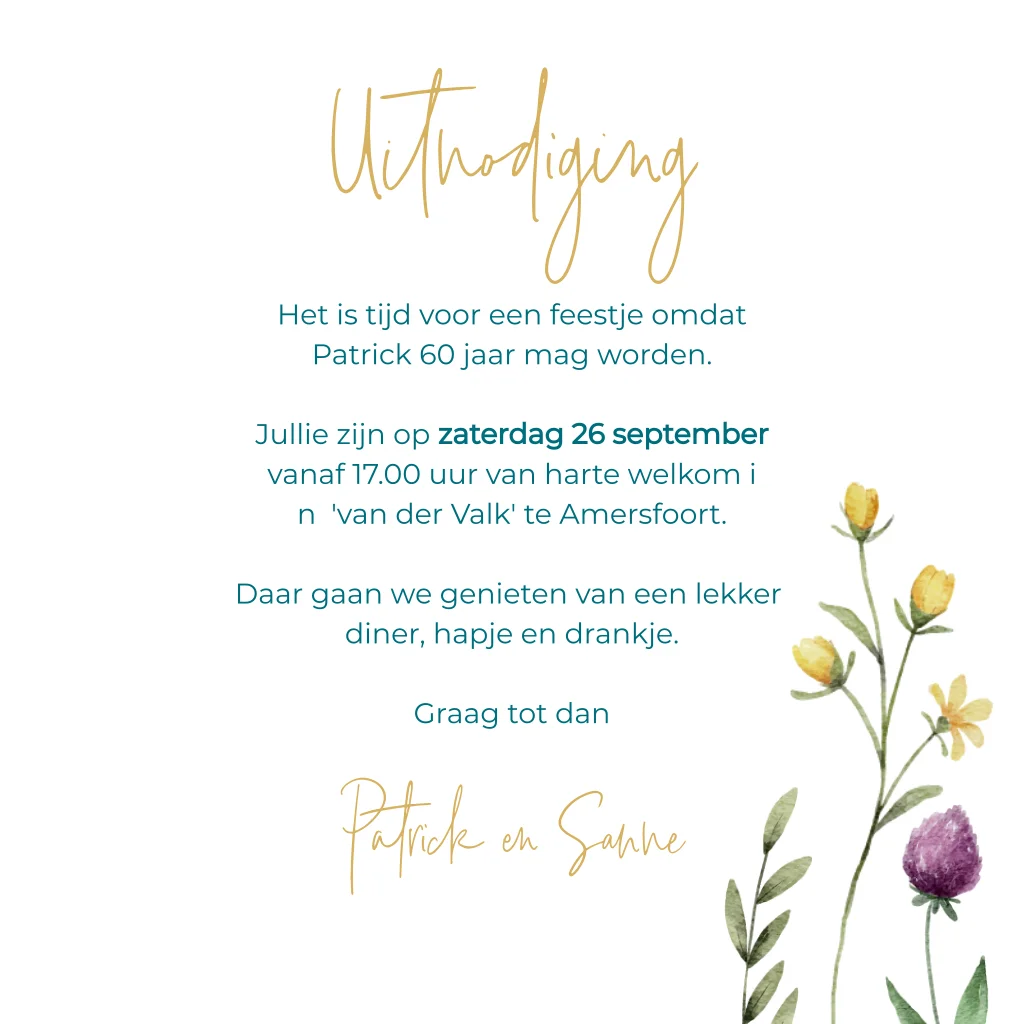 Uitnodiging
Het is tijd voor een feestje omdat
Patrick 60 jaar mag worden.
Jullie zijn op zaterdag 26 september
vanaf 17.00 uur van harte welkom i
n  'van der Valk' te Amersfoort.
Daar gaan we genieten van een lekker
diner, hapje en drankje.
Graag tot dan
Patrick en Sanne